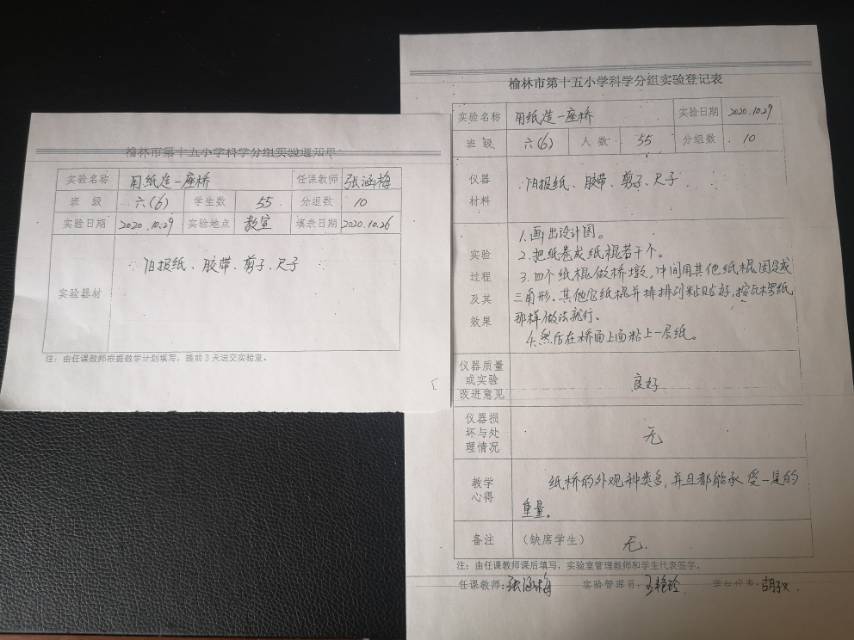 榆林市第十五小学科学分组实验通知单
实验名称 用纸造一座桥 任课教师 张涵梅
班 级 六(6) 学生数 55 分组数 10
实验日期 2020.10.29 实验地点 教室 填表日期 2020.10.26
实验器材 旧报纸、胶带、剪子、尺子
注：由任课教师依据教学计划填写，提前3天送交实验室。
榆林市第十五小学科学分组实验登记表
实验名称 用纸造一座桥 实验日期 2020.10.29
班 级 六(6) 人 数 55 分组数 10
仪器材料 旧报纸、胶带、剪子、尺子
实验过程及其效果
1.画出设计图。
2.把纸卷成纸棍若干个。
3.四个纸棍做桥墩，中间用其他纸棍固定成
三角形。其他它纸棍并排排列粘贴好，按瓦楞纸
那样做法就行。
4.然后在桥面上面粘上一层纸。
仪器质量或实验改进意见 良好
仪器损坏与处理情况 无
教学心得 纸桥的外观种类多，并且都能承受一定的
重量。
备注 (缺席学生) 无
注：由任课教师课后填写，实验室管理教师和学生代表签字。
任课教师：张涵梅 实验管理员：王艳玲 学生代表：